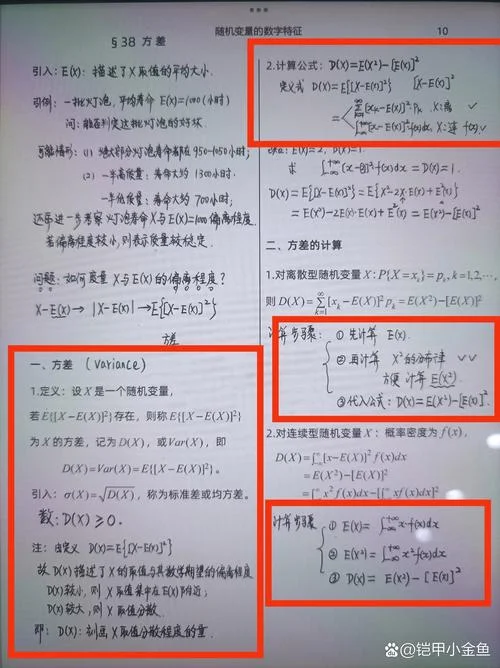 随机变量的数字特征
10
§38 方差
引入: E(X): 描述了X取值的平均大小.
引例: 一批灯泡, 平均寿命 E(X)=1000(小时)
问: 能否判定这批灯泡的好坏.
可能情形: (1) 绝大部分灯泡寿命都在950-1050小时;
(2) 一半高质量: 寿命大约1300小时;
一半低质量: 寿命大约700小时;
还需进一步考察灯泡寿命X与E(X)=1000偏离程度.
若偏离程度较小, 则表示质量较稳定.
问题: 如何度量X与E(X)的偏离程度?
X-E(X) → |X-E(X)| → E{[X-E(X)]²}
方差
一、方差 (Variance)
1.定义: 设X是一个随机变量,
若E{[X-E(X)]²}存在, 则称E{[X-E(X)]²}
为X的方差, 记为D(X), 或Var(X), 即
D(X)=Var(X)=E{[X-E(X)]²}.
引入: σ(X)=√D(X), 称为标准差或均方差.
数: D(X)≥0.
注: 由定义 D(X)=E{[X-E(X)]²}
故D(X)描述了X的取值与其数学期望的偏离程度
D(X)较小, 则X取值集中在E(X)附近;
D(X)较大, 则X取值分散.
即: D(X): 刻画X取值分散程度的量.
2.计算公式: D(X)=E(X²)-[E(X)]²
定义式 D(X)=E{[X-E(X)]²} [X-E(X)]²
= ∑[xₖ-E(X)]²·pₖ, X:离 ✓
∫[x-E(X)]²f(x)dx, X:连 f(x).
E(X)=2, D(X)=1.
求 ∫f(x)dx=D(X)=1.
D(X)=E{[X-E(X)]²}=E{X²-2X·E(X)+E²(X)}
=E(X²)-2E(X)·E(X)+E²(X)=E(X²)-[E(X)]²
二、方差的计算
1.对离散型随机变量X:P{X=xₖ}=pₖ,k=1,2,⋯,
则D(X)=∑[xₖ-E(X)]²pₖ=E(X²)-[E(X)]²
计算步骤: ①先计算 E(X).
②再计算 X²的分布律 ✓✓
方便计算 E(X²).
③代入公式: D(X)=E(X²)-[E(X)]².
2.对连续型随机变量X: 概率密度为f(x),
D(X)=∫[x-E(X)]²f(x)dx
=E(X²)-[E(X)]²
=∫x²f(x)dx-[∫xf(x)dx]²
计算步骤 ① E(X)=∫x·f(x)dx
② E(X²)=∫x²·f(x)dx
③ D(X)=E(X²)-[E(X)]²
Bai百科@铠甲小金鱼